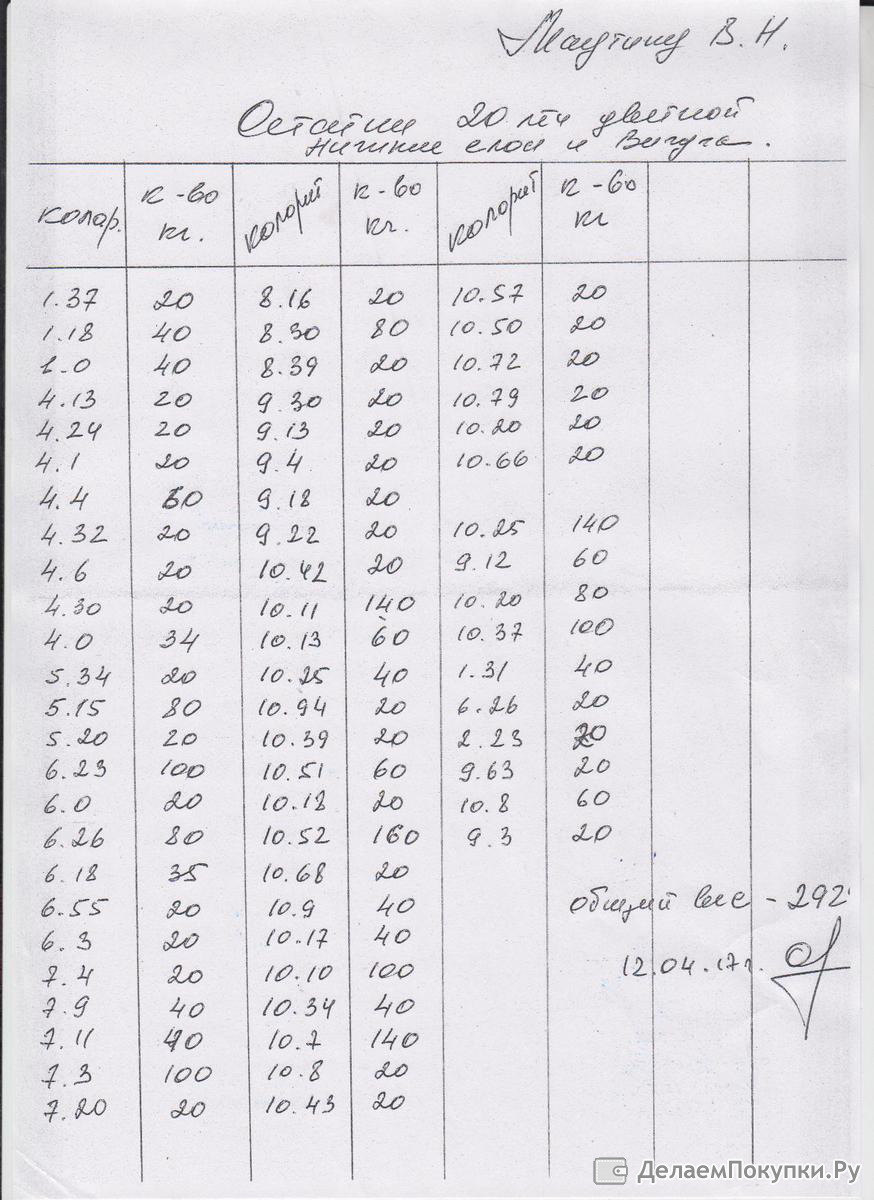 В. Н.
Остатки 20 лти цветной
нижние слои и Вичуга.
колор. к-во кг. колорит к-во кг. колорит к-во кг
1.37 20 8.16 20 10.57 20
1.18 40 8.30 80 10.50 20
1.0 40 8.39 20 10.72 20
4.13 20 9.30 20 10.79 20
4.24 20 9.13 20 10.20 20
4.1 20 9.4 20 10.66 20
4.4 60 9.18 20
4.32 20 9.22 20 10.25 140
4.6 20 10.42 20 9.12 60
4.30 20 10.11 140 10.20 80
4.0 34 10.13 60 10.37 100
5.34 20 10.25 40 1.31 40
5.15 80 10.94 20 6.26 20
5.20 20 10.39 20 2.23 20
6.23 100 10.51 60 9.63 20
6.0 20 10.18 20 10.8 60
6.26 80 10.52 160 9.3 20
6.18 35 10.68 20
6.55 20 10.9 40
общий вес - 292
6.3 20 10.17 40
7.4 20 10.10 100
12.04.17г.
7.9 40 10.34 40
7.11 40 10.7 140
7.3 100 10.8 20
7.20 20 10.43 20
ДелаемПокупки.Ру